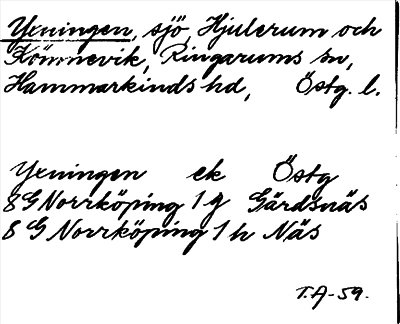 Yxningen, sjö, Hjulerum och
Kömnevik, Ringarums sn,
Hammarkinds hd, Östg. l.
Yxningen ek Östg
8G Norrköping 1g Gärdsnäs
8G Norrköping 1h Näs
T.A-59.